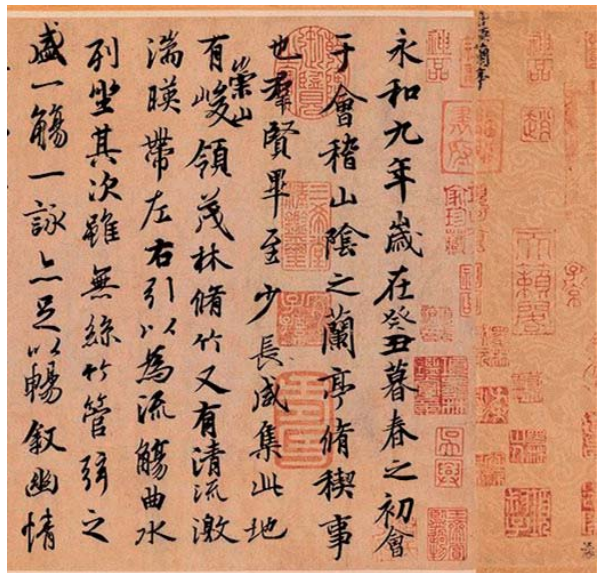 神品
趙
天籟閣
神品
永和九年歲在癸丑暮春之初會
于會稽山陰之蘭亭脩稧事
也羣賢畢至少長咸集此地
有崇山峻領茂林脩竹又有清流激
湍暎帶左右引以為流觴曲水
列坐其次雖無絲竹管弦之
盛一觴一詠亦足以暢敘幽情